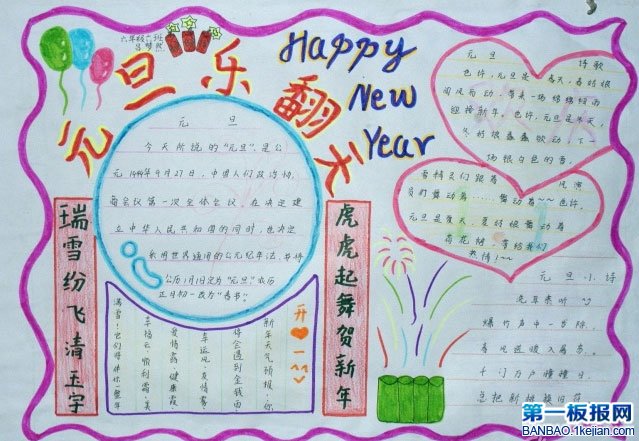 六年级六班
元旦乐翻天
Happy
New
Year
元旦
今天所说的“元旦”是公
元1949年9月27日，中国人民政治协
商会议第一次全体会议，在决定建
立中华人民共和国的同时，也决定
采用世界通用的公元纪年法，并将
公历1月1日定为“元旦”，农历
正月初一改为“春节”
瑞雪纷飞清玉宇
虎虎起舞贺新年
开心一笑
新年天气预报：你
将会遇到金钱雨
幸运风、友情雾
爱情露、健康霞
幸福云、顺利霜、美
满雪！它们将伴你一整年
元旦 诗歌
也许，元旦是春天，春对根
迎接新年。也许，元旦是冬天，
冬对根轰轰欲动，下一
场银白色的雪。
雪精灵们跟着
舞动着……舞动着~~也许，
元旦是夏天，夏对根舞动着
元旦小诗
洗耳来听
爆竹声中一岁除，
春风送暖入屠苏。
千门万户曈曈日，
总把新桃换旧符
第一板报网
BANBAO.1kejian.com